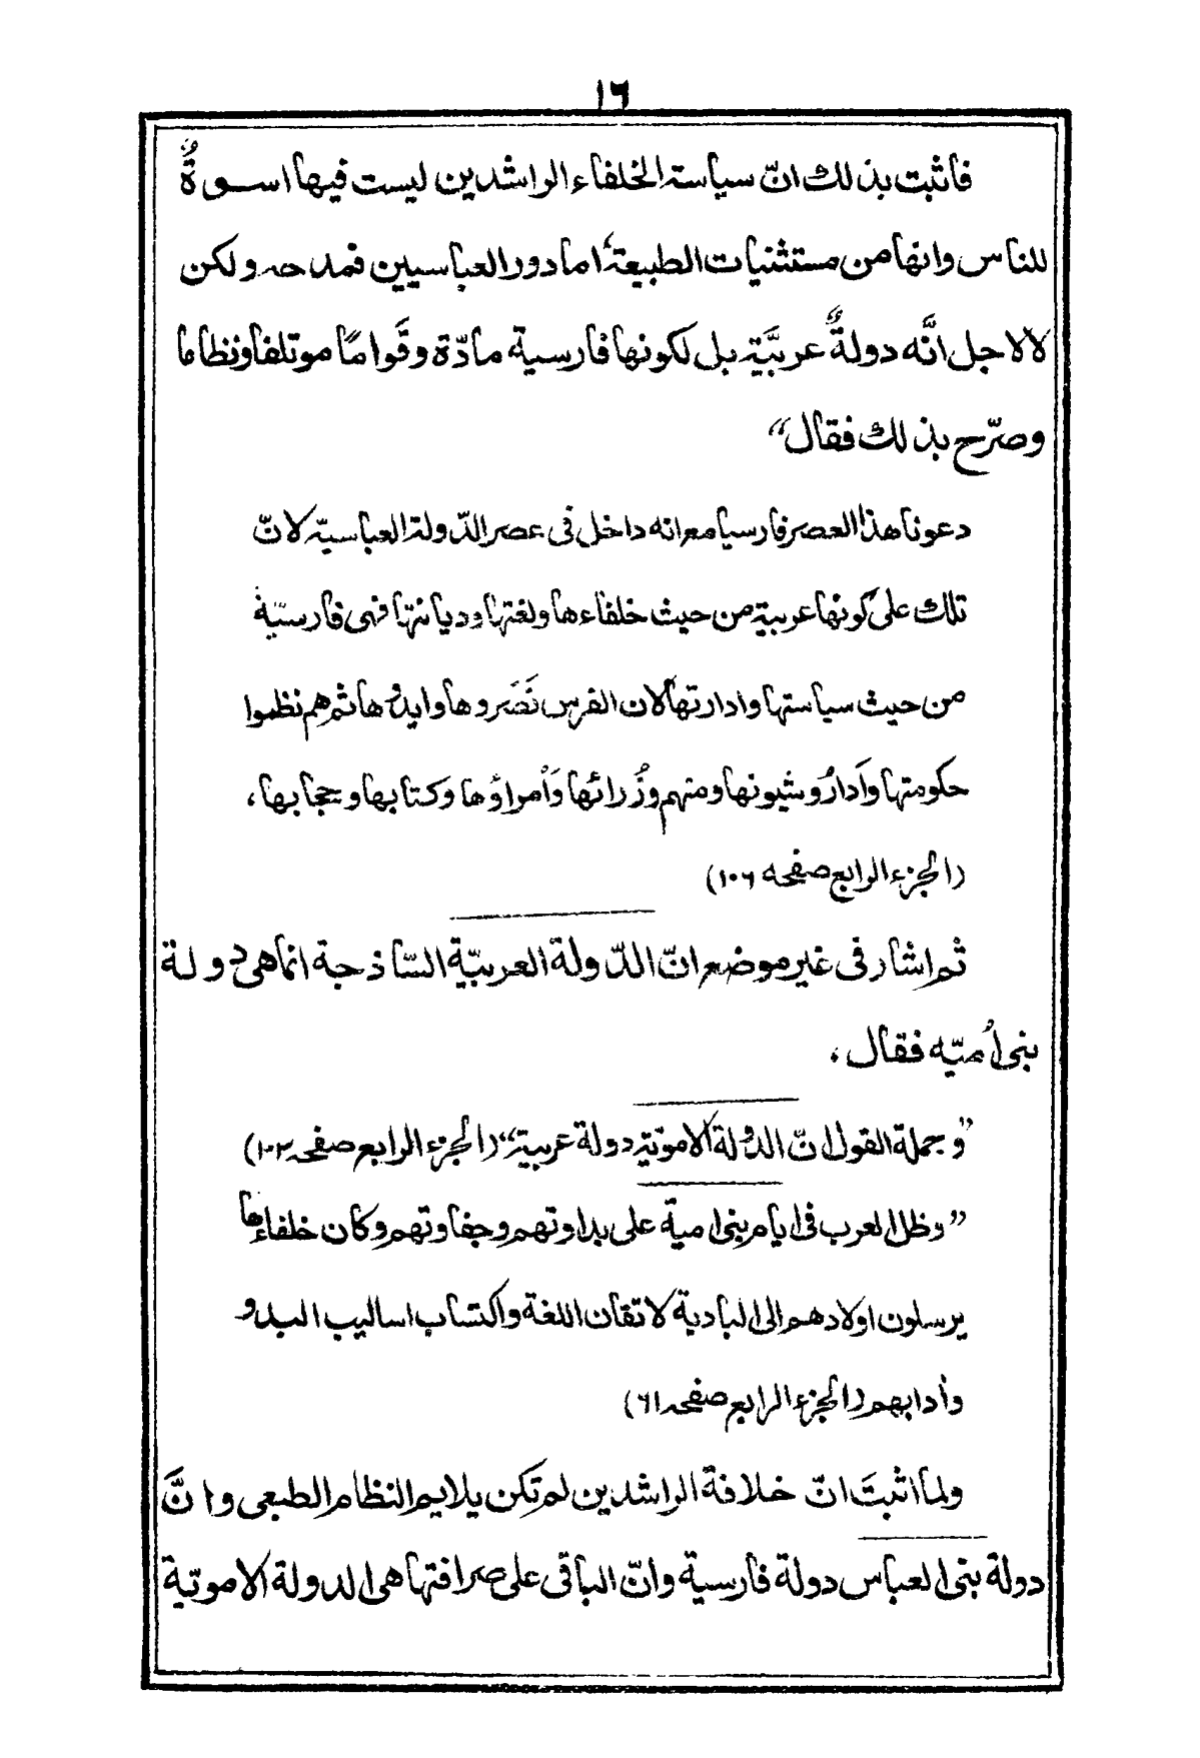 ١٦
فاثبت بذلك انّ سياسة الخلفاء الراشدين ليست فيها اسوةٌ
للناس وانها من مستثنيات الطبيعة، اما دور العباسيين فمدحه ولكن
لا لاجل انَّه دولةٌ عربيَّة بل لكونها فارسية مادّة وقَوامًا موتلفا ونظاما
وصرّح بذلك فقال“
دعونا هذا العصر فارسيا مع انه داخل فى عصر الدّولة العباسيّة لانّ
تلك على كونها عربية من حيث خلفاءها ولغتها وديانتها فهى فارسيّة
من حيث سياستها وادارتها لان الفرس نَصَروها وايدوها ثم هم نظموا
حكومتها واَدارُو شيونها ومنهم وُزرائها وَاُمراؤُها وكتابها وحجابها،
(الجزء الرابع صفحه ١٠٦)
ثم اشار فى غير موضع انّ الدّولة العربيّة السّاذجة انما هى دولة
بنى اُميّه فقال،
”وجملة القول انّ الدولة الامويّة دولة عربية“ (الجزء الرابع صفحه ١٠٣)
”وظل العرب فى ايام بنى امية على بداوتهم وجفاوتهم وكان خلفاءها
يرسلون اولادهم الى البادية لاتقان اللغة واكتساب اساليب البدو
وأدابهم (الجزء الرابع صفحه ٦١)
ولما اثبتَ انّ خلافة الراشدين لم تكن يلايم النظام الطبعى وانَّ
دولة بنى العباس دولة فارسية وانّ الباقى على صرافتها هى الدولة الامويّة